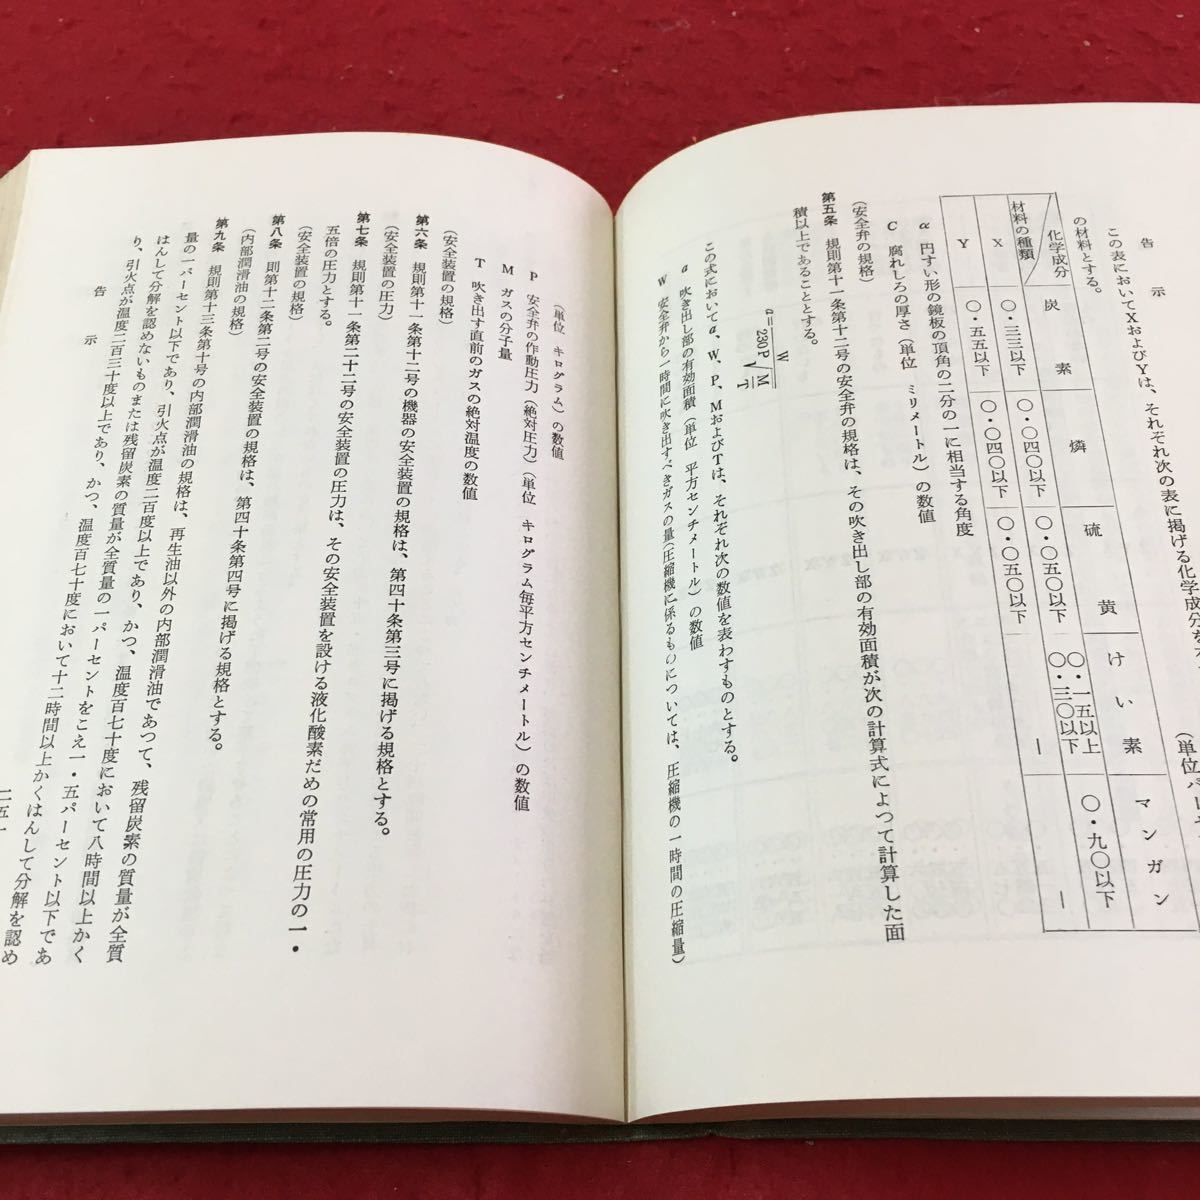 告示
この表においてXおよびYは、それぞれ次の表に掲げる化学成分を
の材料とする。
(単位パーセ
化学成分
材料の種類
炭素
燐
硫黄
けい素
マンガン
X
〇・三三以下
〇・〇四〇以下
〇・〇五〇以下
〇・一五以上
〇・三〇以下
〇・九〇以下
Y
〇・五五以下
〇・〇四〇以下
〇・〇五〇以下
—
—
α 円すい形の鏡板の頂角の二分の一に相当する角度
C 腐れしろの厚さ(単位 ミリメートル)の数値
(安全弁の規格)
第五条 規則第十一条第十二号の安全弁の規格は、その吹き出し部の有効面積が次の計算式によつて計算した面
積以上であることとする。
a = W / 230P√(M/T)
この式においてa、W、P、MおよびTは、それぞれ次の数値を表わすものとする。
a 吹き出し部の有効面積(単位 平方センチメートル)の数値
W 安全弁から一時間に吹き出すべきガスの量(圧縮機に係るものについては、圧縮機の一時間の圧縮量)
(単位 キログラム)の数値
P 安全弁の作動圧力(絶対圧力)(単位 キログラム毎平方センチメートル)の数値
M ガスの分子量
T 吹き出す直前のガスの絶対温度の数値
(安全装置の規格)
第六条 規則第十一条第十二号の機器の安全装置の規格は、第四十条第三号に掲げる規格とする。
(安全装置の圧力)
第七条 規則第十一条第二十二号の安全装置の圧力は、その安全装置を設ける液化酸素だめの常用の圧力の一・
五倍の圧力とする。
(安全装置の規格)
第八条 則第十二条第二号の安全装置の規格は、第四十条第四号に掲げる規格とする。
(内部潤滑油の規格)
第九条 規則第十三条第十号の内部潤滑油の規格は、再生油以外の内部潤滑油であつて、残留炭素の質量が全質
量の一パーセント以下であり、引火点が温度二百度以上であり、かつ、温度百七十度において八時間以上かく
はんして分解を認めないものまたは残留炭素の質量が全質量の一パーセントをこえ一・五パーセント以下であ
り、引火点が温度二百三十度以上であり、かつ、温度百七十度において十二時間以上かくはんして分解を認め
告示
二五一